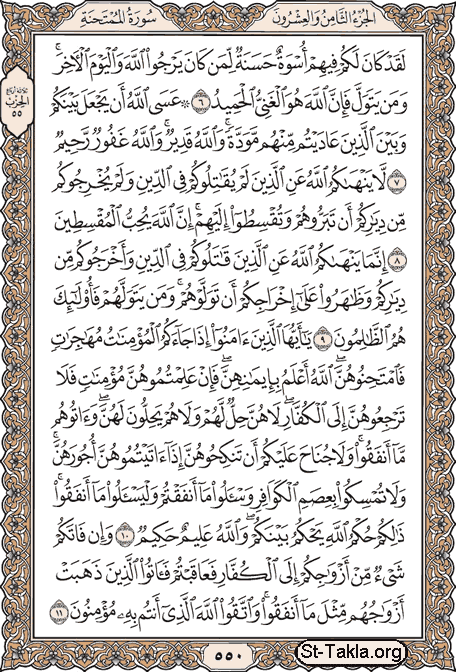 الجزء الثامن والعشرون
سورة الممتحنة
ثلاثة أرباع
الحزب
٥٥
لَقَدْ كَانَ لَكُمْ فِيهِمْ أُسْوَةٌ حَسَنَةٌ لِّمَن كَانَ يَرْجُوا۟ ٱللَّهَ وَٱلْيَوْمَ ٱلْءَاخِرَ ۚ
وَمَن يَتَوَلَّ فَإِنَّ ٱللَّهَ هُوَ ٱلْغَنِىُّ ٱلْحَمِيدُ ٦ ۞ عَسَى ٱللَّهُ أَن يَجْعَلَ بَيْنَكُمْ
وَبَيْنَ ٱلَّذِينَ عَادَيْتُم مِّنْهُم مَّوَدَّةً ۚ وَٱللَّهُ قَدِيرٌ ۚ وَٱللَّهُ غَفُورٌ رَّحِيمٌ
٧ لَّا يَنْهَىٰكُمُ ٱللَّهُ عَنِ ٱلَّذِينَ لَمْ يُقَٰتِلُوكُمْ فِى ٱلدِّينِ وَلَمْ يُخْرِجُوكُم
مِّن دِيَٰرِكُمْ أَن تَبَرُّوهُمْ وَتُقْسِطُوٓا۟ إِلَيْهِمْ ۚ إِنَّ ٱللَّهَ يُحِبُّ ٱلْمُقْسِطِينَ
٨ إِنَّمَا يَنْهَىٰكُمُ ٱللَّهُ عَنِ ٱلَّذِينَ قَٰتَلُوكُمْ فِى ٱلدِّينِ وَأَخْرَجُوكُم مِّن
دِيَٰرِكُمْ وَظَٰهَرُوا۟ عَلَىٰٓ إِخْرَاجِكُمْ أَن تَوَلَّوْهُمْ ۚ وَمَن يَتَوَلَّهُمْ فَأُو۟لَٰٓئِكَ
هُمُ ٱلظَّٰلِمُونَ ٩ يَٰٓأَيُّهَا ٱلَّذِينَ ءَامَنُوٓا۟ إِذَا جَآءَكُمُ ٱلْمُؤْمِنَٰتُ مُهَٰجِرَٰتٍ
فَٱمْتَحِنُوهُنَّ ۖ ٱللَّهُ أَعْلَمُ بِإِيمَٰنِهِنَّ ۖ فَإِنْ عَلِمْتُمُوهُنَّ مُؤْمِنَٰتٍ فَلَا
تَرْجِعُوهُنَّ إِلَى ٱلْكُفَّارِ ۖ لَا هُنَّ حِلٌّ لَّهُمْ وَلَا هُمْ يَحِلُّونَ لَهُنَّ ۖ وَءَاتُوهُم
مَّآ أَنفَقُوا۟ ۚ وَلَا جُنَاحَ عَلَيْكُمْ أَن تَنكِحُوهُنَّ إِذَآ ءَاتَيْتُمُوهُنَّ أُجُورَهُنَّ ۚ
وَلَا تُمْسِكُوا۟ بِعِصَمِ ٱلْكَوَافِرِ وَسْـَٔلُوا۟ مَآ أَنفَقْتُمْ وَلْيَسْـَٔلُوا۟ مَآ أَنفَقُوا۟ ۚ
ذَٰلِكُمْ حُكْمُ ٱللَّهِ ۖ يَحْكُمُ بَيْنَكُمْ ۚ وَٱللَّهُ عَلِيمٌ حَكِيمٌ ١٠ وَإِن فَاتَكُمْ
شَىْءٌ مِّنْ أَزْوَٰجِكُمْ إِلَى ٱلْكُفَّارِ فَعَاقَبْتُمْ فَـَٔاتُوا۟ ٱلَّذِينَ ذَهَبَتْ
أَزْوَٰجُهُم مِّثْلَ مَآ أَنفَقُوا۟ ۚ وَٱتَّقُوا۟ ٱللَّهَ ٱلَّذِىٓ أَنتُم بِهِۦ مُؤْمِنُونَ ١١
٥٥٠
St-Takla.org